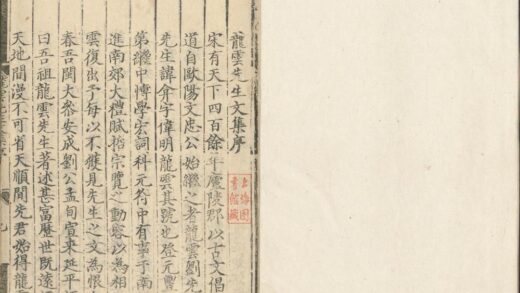 龍雲先生文集序
宋有天下四百餘年廬陵郡以古文倡
道自歐陽文忠公始繼之者龍雲劉先
先生諱弇字偉明龍雲其號也登元豐
第繼中博學宏詞科元符中有事于南
進南郊大禮賦哲宗覽之動容以為相
雲復出予每以不獲見先生之文為恨
春吾閩大叅安成劉公孟旬宣來延平
曰吾祖龍雲先生著述甚富歷世既遠
天地間漫不可省天順間先君始得龍
上海圖書館藏